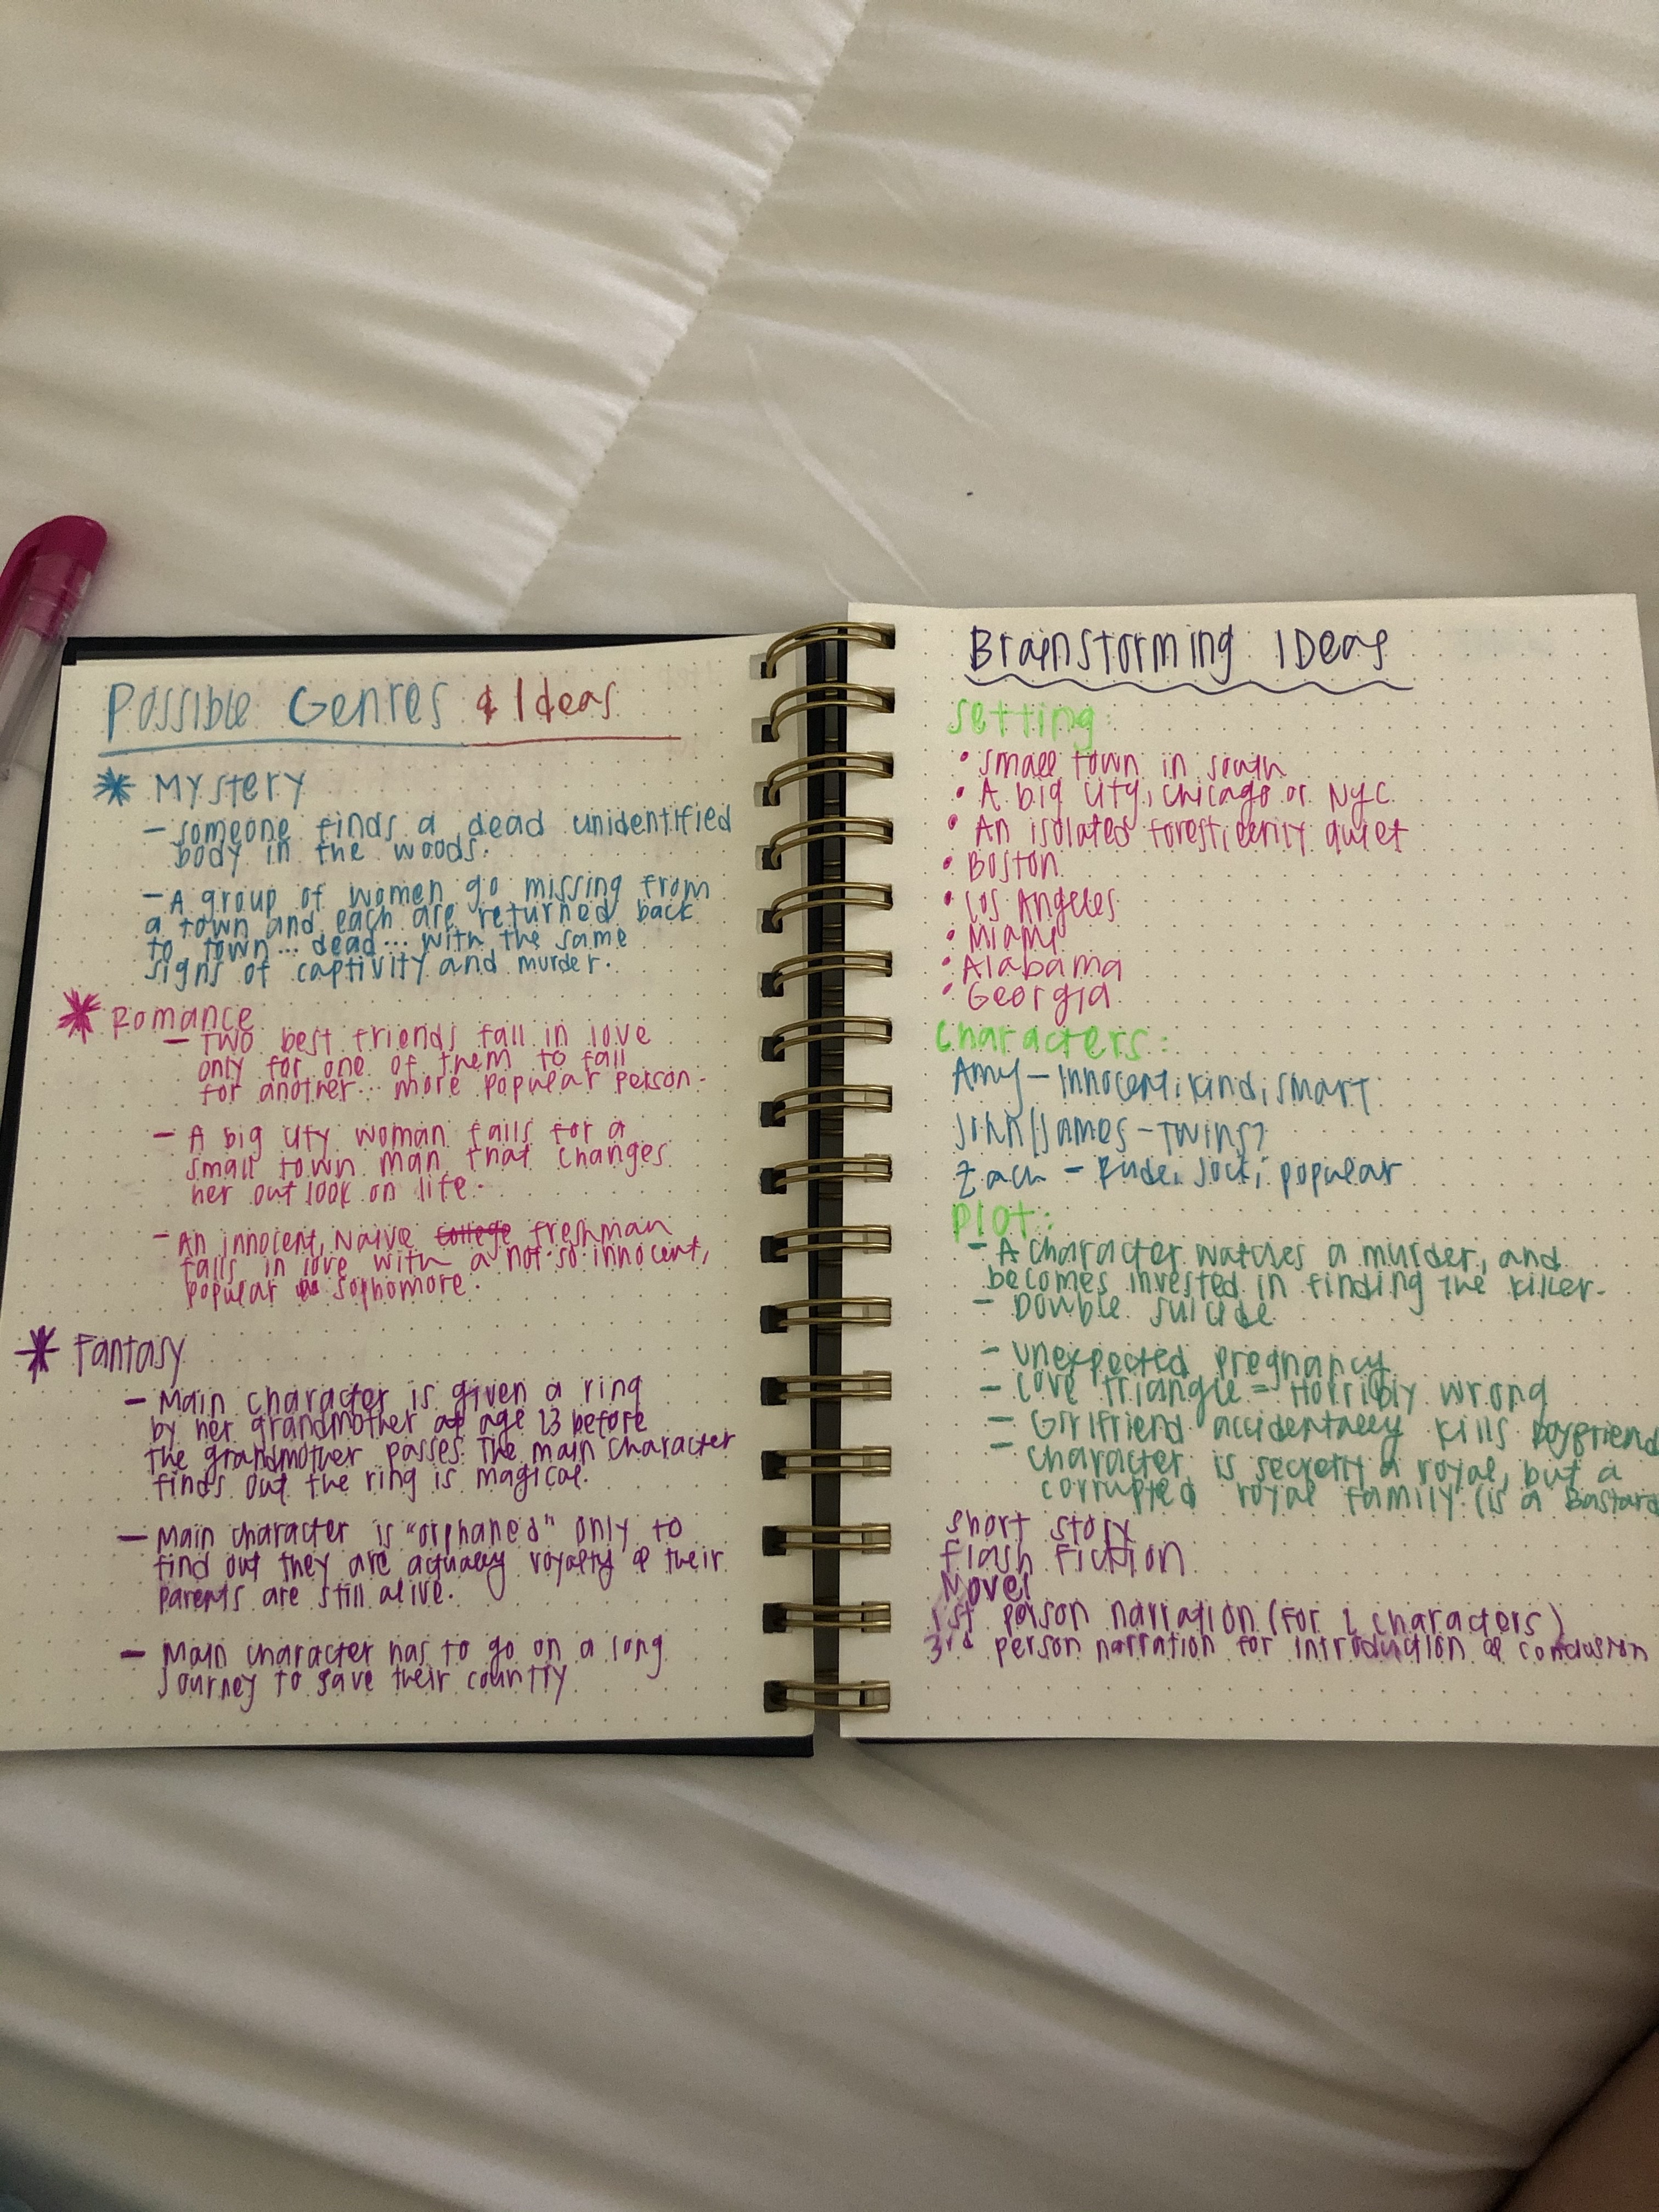 Possible Genres & Ideas
Mystery
- someone finds a dead unidentified
body in the woods.
- A group of women go missing from
a town and each are returned back
to town... dead... with the same
signs of captivity and murder.
Romance
- Two best friends fall in love
only for one of them to fall
for another... more popular person.
- A big city woman falls for a
small town man that changes
her outlook on life.
- An innocent, Naive college freshman
falls in love with a not-so-innocent,
popular sophomore.
Fantasy
- Main character is given a ring
by her grandmother at age 13 before
the grandmother passes. The main character
finds out the ring is magical.
- Main character is "orphaned" only to
find out they are actually royalty & their
parents are still alive.
- Main character has to go on a long
journey to save their country
Brainstorming Ideas
Setting:
• small town in south
• A big city, Chicago or NYC
• An isolated forest, eerily quiet
• Boston
• Los Angeles
• Miami
• Alabama
• Georgia
Characters:
Amy - Innocent, kind, smart
John/James - Twins?
Zach - Rude, Jock, popular
Plot:
- A character watches a murder, and
becomes invested in finding the killer.
- Double suicide
- unexpected pregnancy
- Love triangle = Horribly wrong
- Girlfriend accidentally kills boyfriend
- character is secretly a royal, but a
corrupted royal family (is a Bastard
short story
flash fiction
Novel
1st person narration (for 2 characters)
3rd person narration for introduction & conclusion